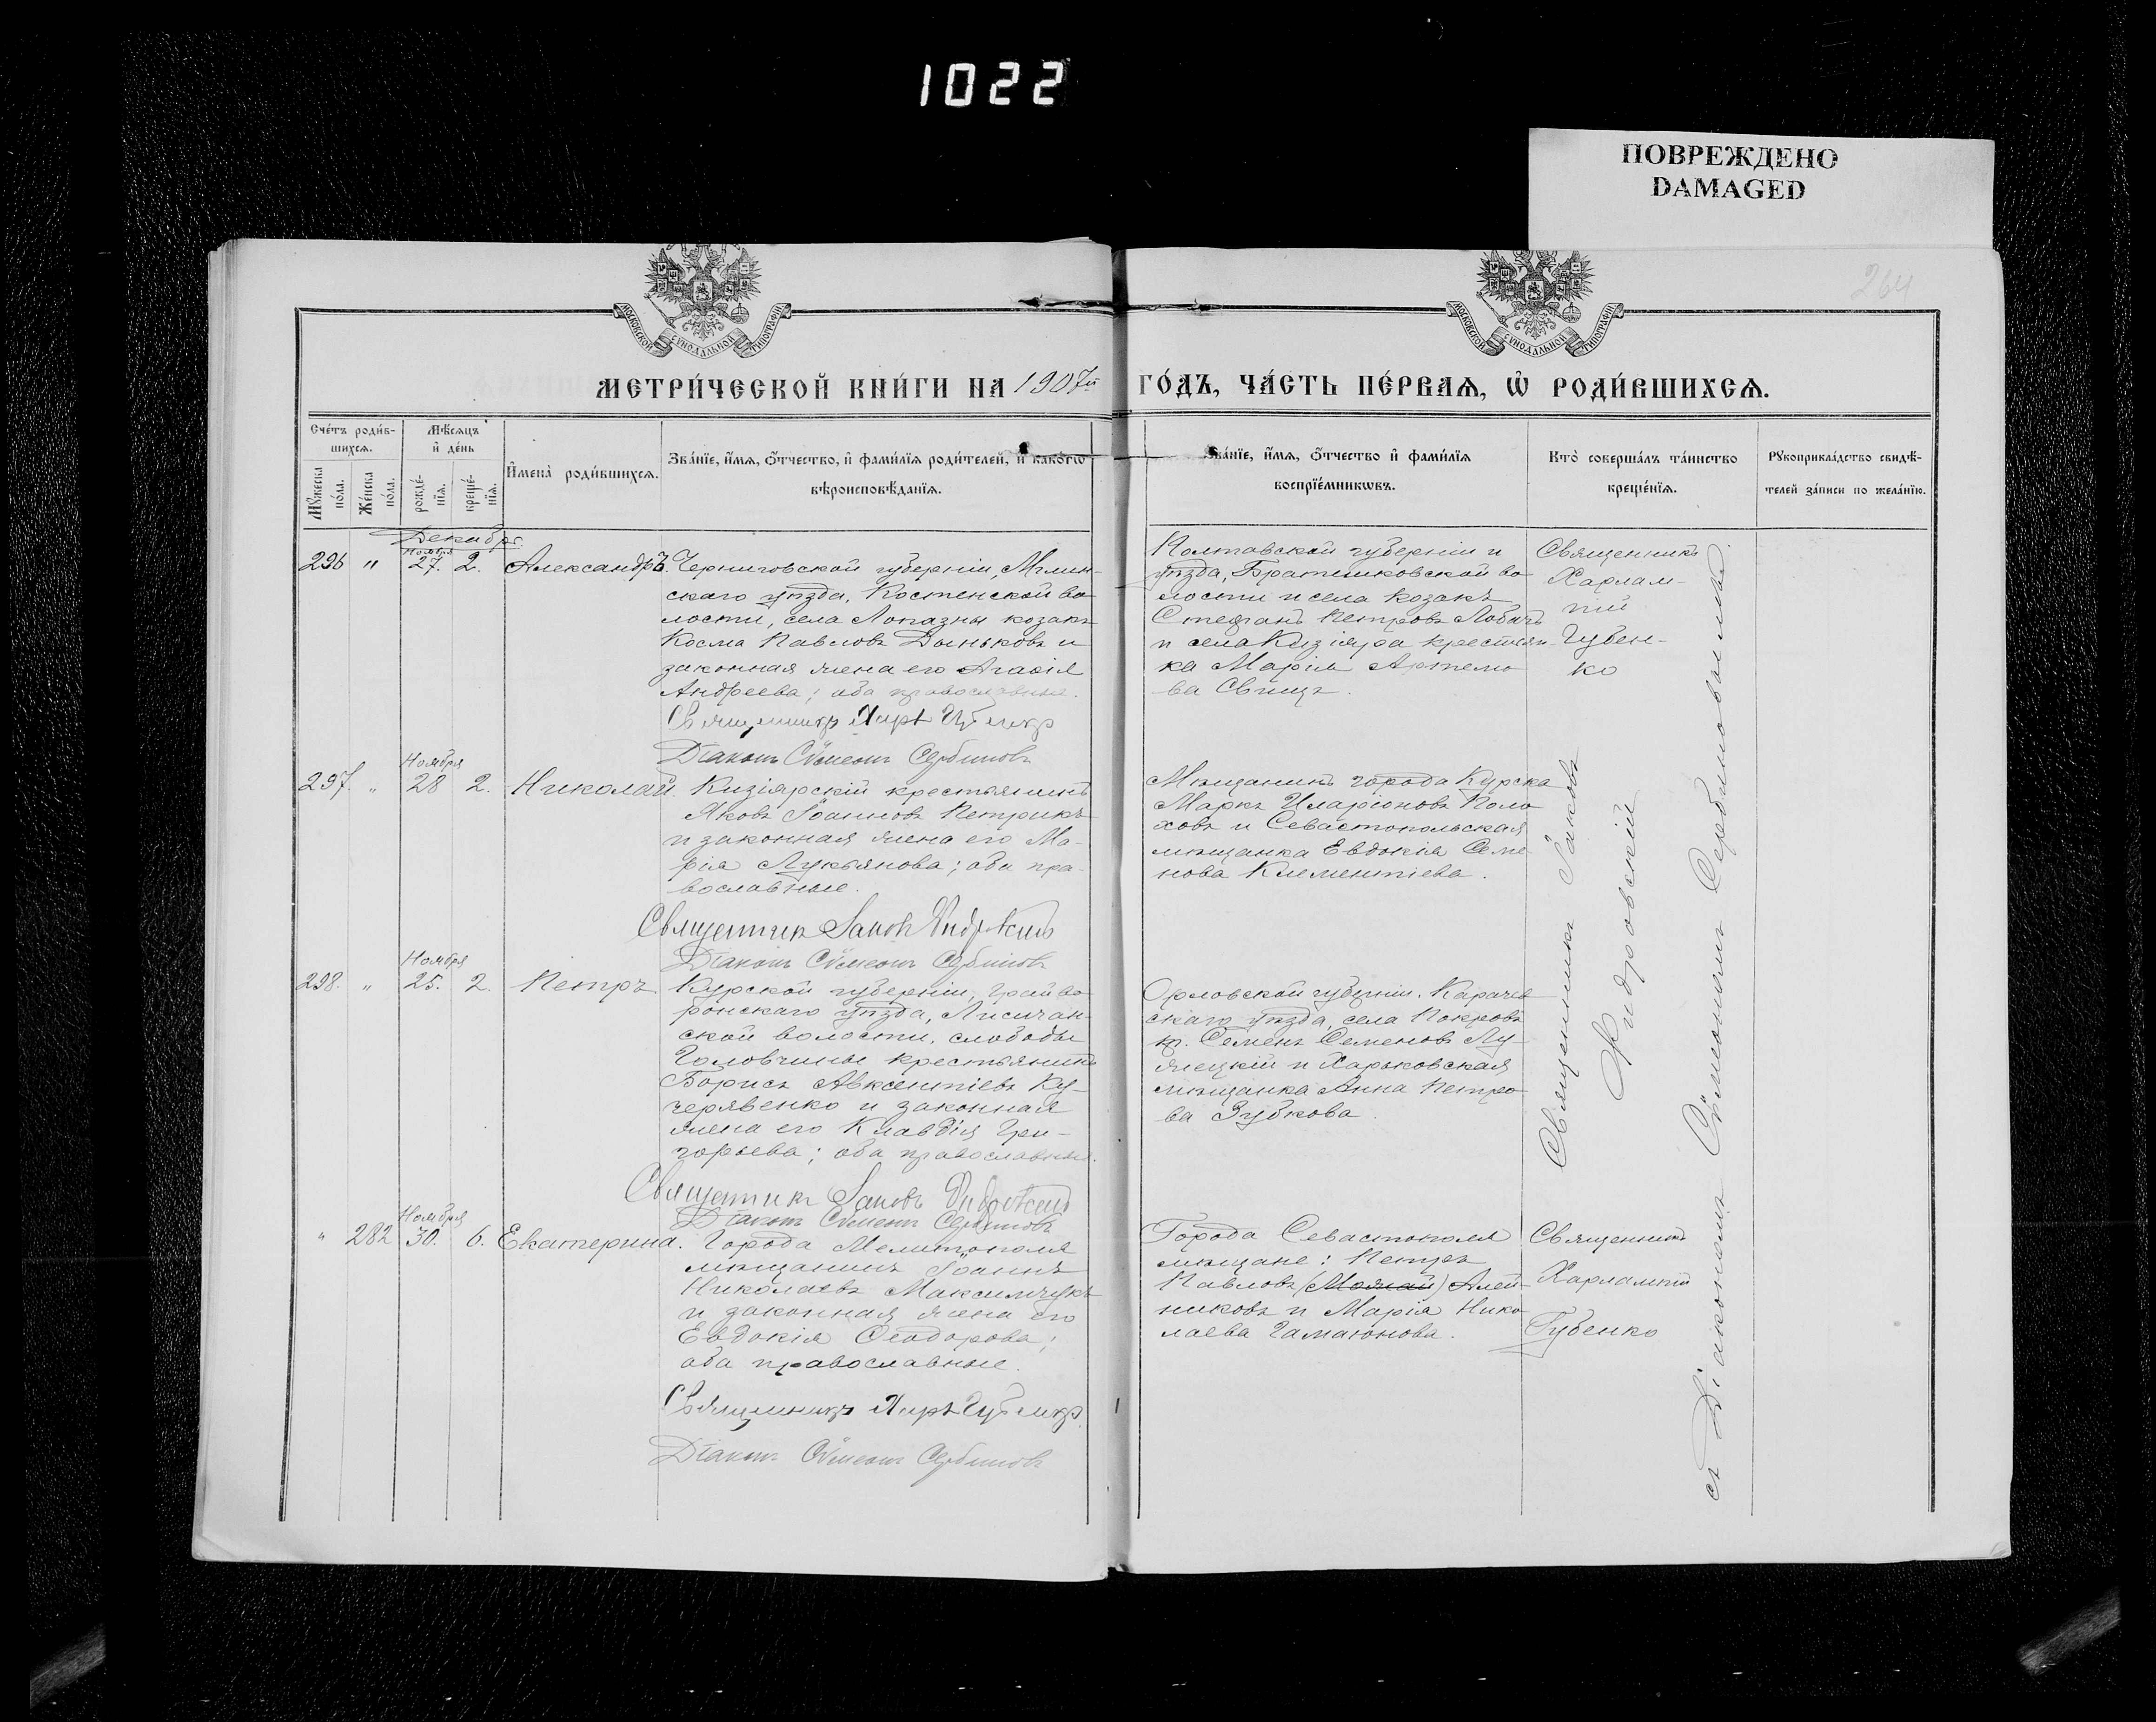 1022
ПОВРЕЖДЕНО
DAMAGED
264
МОСКОВСКОЙ СУНОДАЛЬНОЙ ТИПОГРАФІИ
МОСКОВСКОЙ СУНОДАЛЬНОЙ ТИПОГРАФІИ
МЕТРИ́ЧЕСКОЙ КНИ́ГИ НА 1907й ГО́ДЪ, ЧА́СТЬ ПЕ́РВАѦ, Ѡ҆ РОДИ́ВШИХСѦ.
Сче́тъ роди́в-
шихсѧ.
Мꙋ́жеска по́ла.
Же́нска по́ла.
Мѣ́сѧцъ
и҆ де́нь
рожде́-
нїѧ.
креще́-
нїѧ.
И҆мена̀ роди́вшихсѧ.
Зва́нїе, и҆́мѧ, ѻ҆́тчество, и҆ фами́лїѧ роди́телей, и҆ како́гѡ
вѣроисповѣ́данїѧ.
Зва́нїе, и҆́мѧ, ѻ҆́тчество и҆ фами́лїѧ
воспрїе́мникѡвъ.
Кто̀ соверша́лъ та́инство
креще́нїѧ.
Рꙋкоприкла́дство свидѣ́-
телей за́писи по жела́нїю.
Декабрь
296 " Ноября 27. 2. Александръ.
Черниговской губерніи, Мглин-
скаго уѣзда, Костенской во-
лости, села Лопазны козакъ
Косма Павловъ Дыньковъ и
законная жена его Агаѳія
Андреева; оба православные.
Священникъ Харл Губенко
Діаконъ Сѵмеонъ Сербиновъ
Полтавской губерніи и
уѣзда, Братешковской во
лости и села козакъ
Стефанъ Петровъ Лобачъ
и села Кизіяра крестьян-
ка Марія Артемо
ва Свищъ.
Священникъ
Харлам-
пій
Губен-
ко
297. " Ноября 28 2. Николай.
Кизіярскій крестьянинъ
Яковъ Іоанновъ Петрикъ
и законная жена его Ма-
рія Лукьянова; оба пра-
вославные.
Священник Іаков Жидровский
Діаконъ Сѵмеонъ Сербиновъ
Мѣщанинъ города Курска
Маркъ Иларіоновъ Поло
ховъ и Севастопольская
мѣщанка Евдокія Семе
нова Клементіева.
298. " Ноября 25. 2. Петръ.
Курской губерніи, Грайво-
ронскаго уѣзда, Лисичан-
ской волости, слободы
Головчины крестьянинъ
Борисъ Авксентіевъ Ку-
черявенко и законная
жена его Клавдія Гри-
горьева; оба православные.
Священник Іаковъ Жидровский
Діаконъ Сѵмеонъ Сербиновъ
Орловской губерніи, Карачев
скаго уѣзда, села Покровъ
кр. Семенъ Семеновъ Лу
жецкій и Харьковская
мѣщанка Анна Петро
ва Зубкова.
Священникъ Іаковъ
Жидровскій
съ Діакономъ Сѵмеономъ Сербиновымъ
" 282 Ноября 30. 6. Екатерина.
Города Мелитополя
мѣщанинъ Іоаннъ
Николаевъ Максимчукъ
и законная жена его
Евдокія Ѳеодорова;
оба православные.
Священникъ Харл Губенко
Діаконъ Сѵмеонъ Сербиновъ
Города Севастополя
мѣщане: Петръ
Павловъ Алей-
никовъ и Марія Нико
лаева Гамаюнова.
Священникъ
Харлампій
Губенко